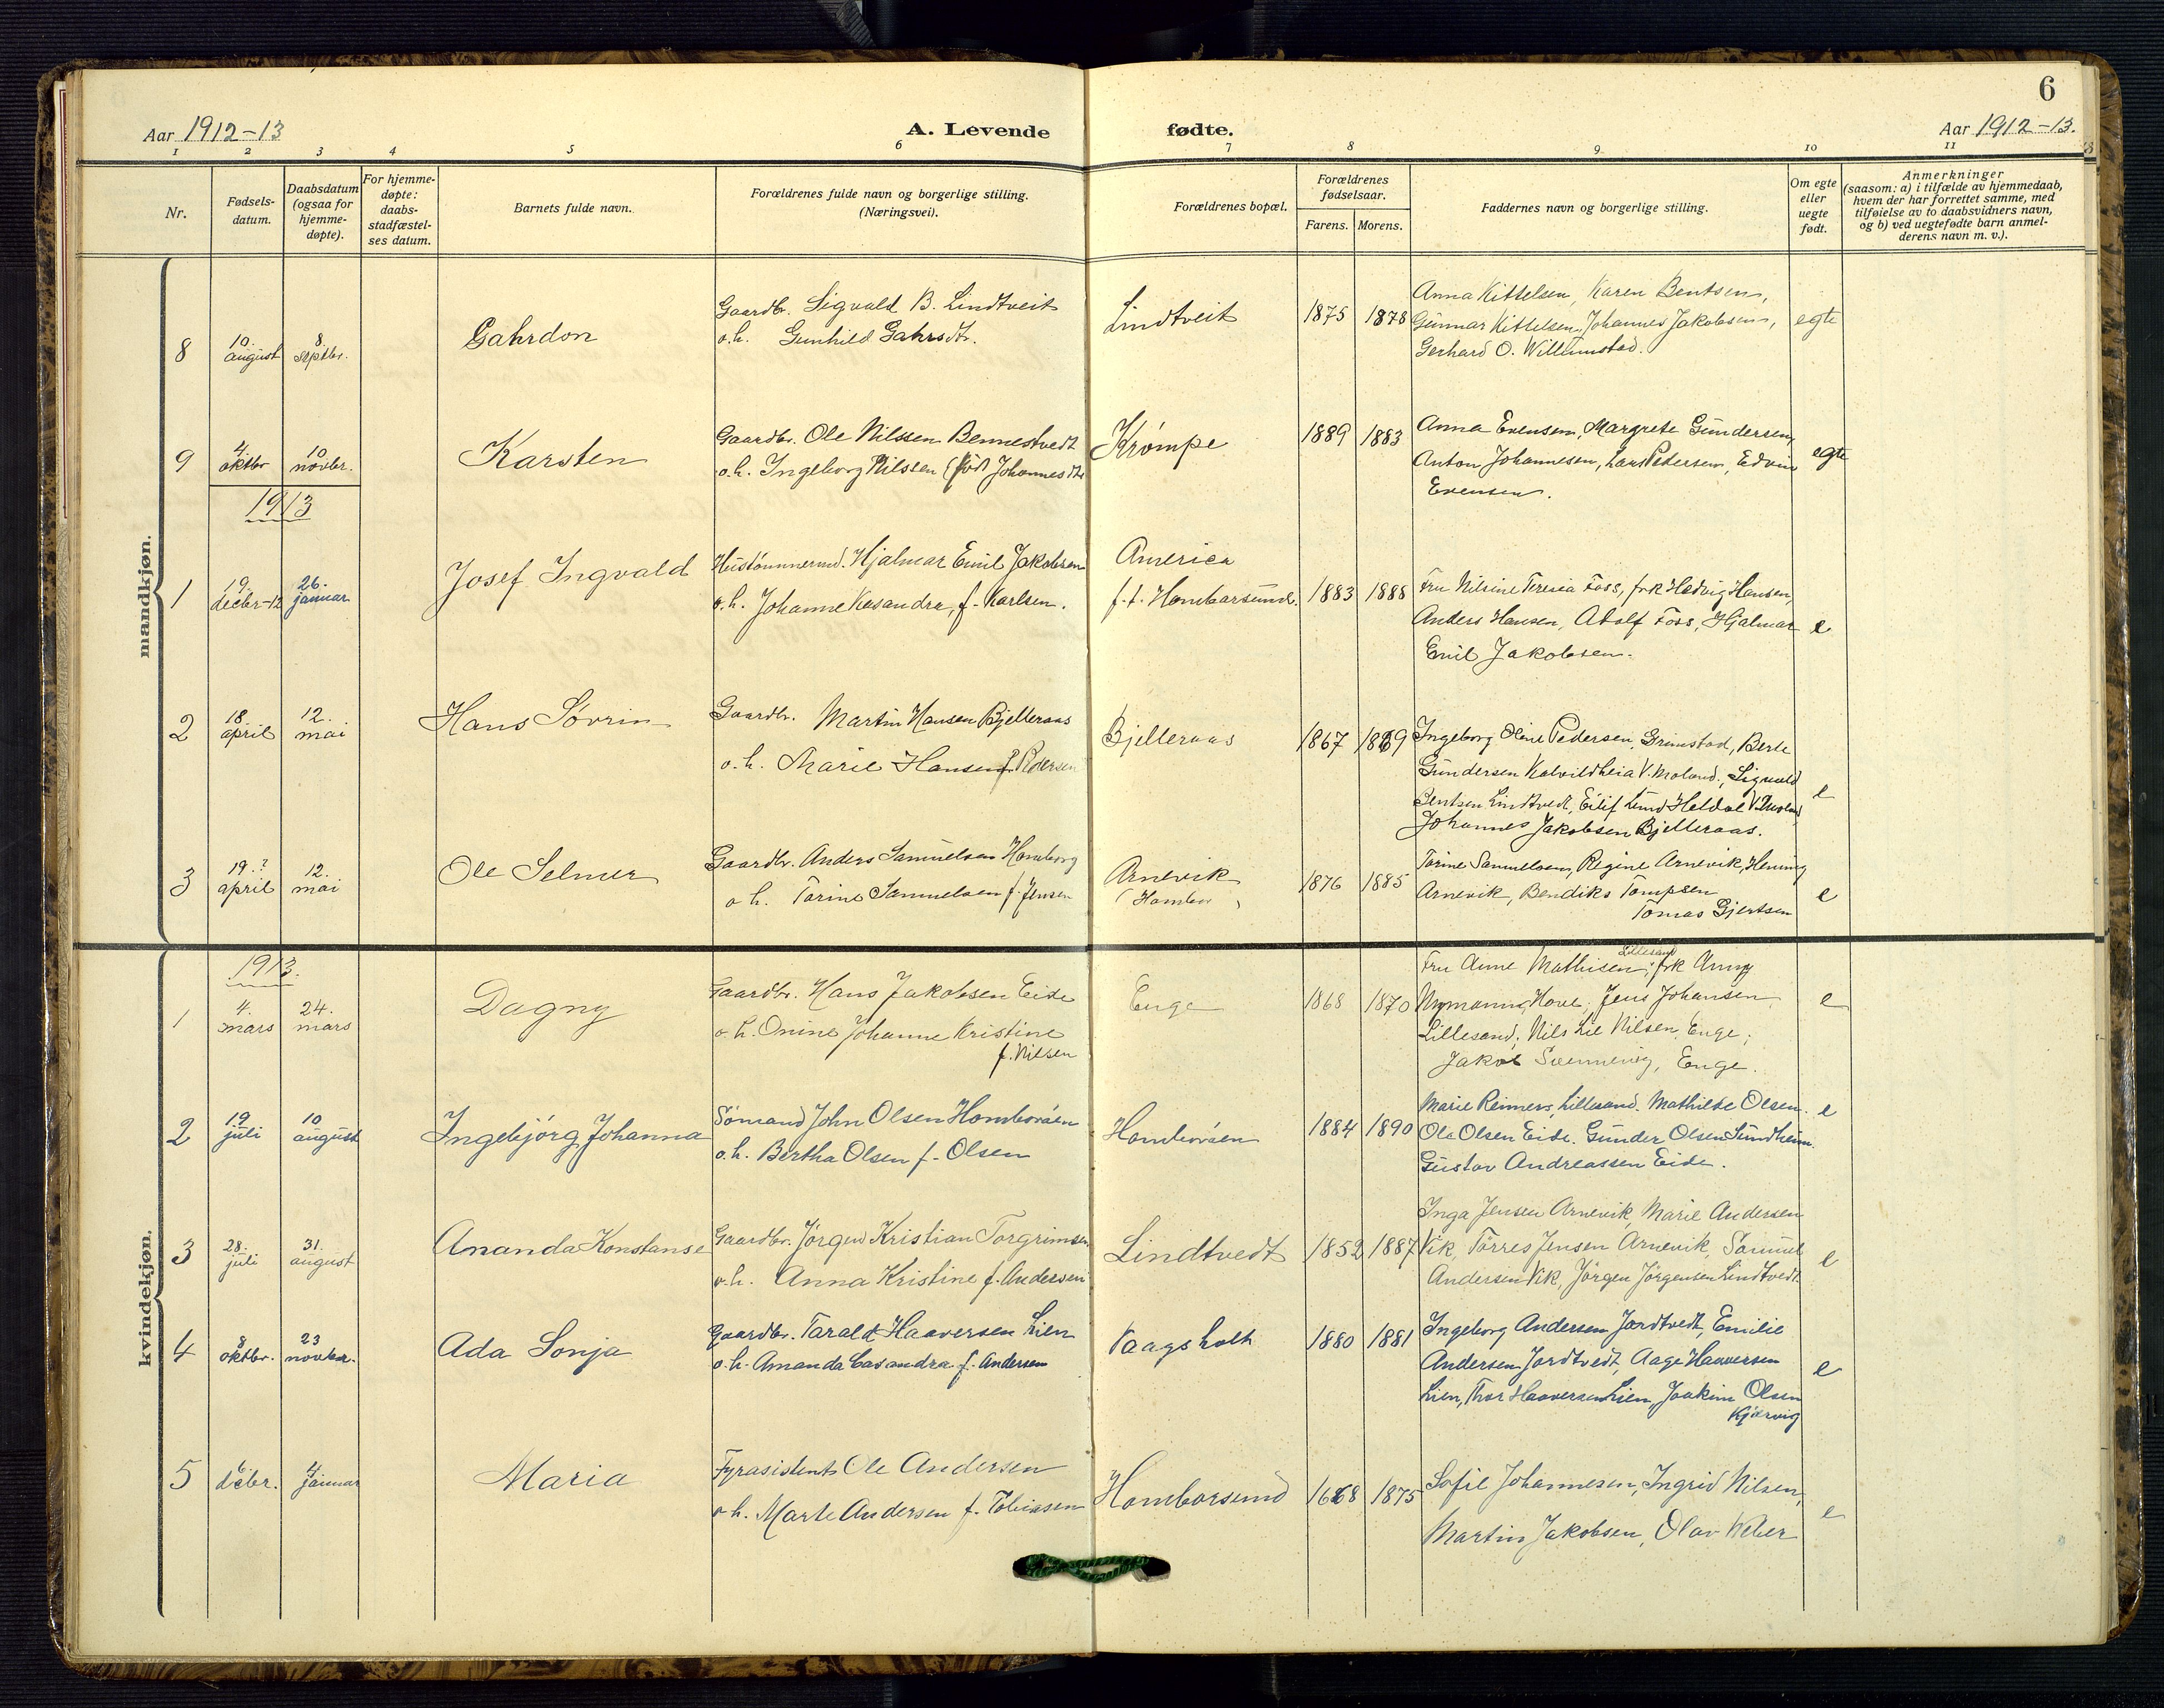 6
Aar 1912-13
A. Levende fødte.
Aar 1912-13.
1 2 3 4 5 6 7 8 9 10 11
Nr.
Fødsels-
datum.
Daabsdatum
(ogsaa for
hjemme-
døpte).
For hjemme-
døpte:
daabs-
stadfæstel-
ses datum.
Barnets fulde navn.
Forældrenes fulde navn og borgerlige stilling.
(Næringsvei).
Forældrenes bopæl.
Forældrenes
fødselsaar.
Farens. Morens.
Faddernes navn og borgerlige stilling.
Om egte
eller
uegte
født.
Anmerkninger
(saasom: a) i tilfælde av hjemmedaab,
hvem der har forrettet samme, med
tilføielse av to daabsvidners navn,
og b) ved uegtefødte barn anmel-
derens navn m. v.).
mandkjøn.
8
10.
august
8.
septbr.
Gahrdon
Gaardbr. Sigvald B. Lindtveit
o.h. Gunhild Gahrsdtr.
Lindtveit
1875 1878
Anna Kittelsen, Karen Bentsen,
Gunnar Kittelsen, Johannes Jakobsen,
Gerhard O. Willumstad.
egte
9
4.
oktbr
10
novbr.
Karsten
Gaardbr. Ole Nilssen Bennestvedt
o.h. Ingeborg Nilssen (født Johannesdtr
Krømpe
1889 1883
Anna Evensen, Margrete Gundersen,
Anton Johannesen, Lars Pedersen, Edvin
Evensen.
egte
1913
1
19.
decbr-12
26.
januar
Josef Ingvald
Hustømmermd. Hjalmar Emil Jakobsen
o.h. Johanne Kasandra, f. Karlsen.
America
f.t. Homborsund.
1883 1888
Fru Nilsine Teresia Foss, frk Hedvig Hansen,
Anders Hansen, Adolf Foss, Hjalmar
Emil Jakobsen.
e
2
18.
april
12.
mai
Hans Søvrin
Gaardbr. Martin Hansen Bjelleraas
o.h. Marie Hansen f. Pedersen
Bjelleraas
1867 1869
Ingeborg Oline Pedersen, Grimstad, Berte
Gundersen Kalvildheia V. Moland, Sigvald
Bentsen Lindtvedt, Eilif Lund Heldal V. Moland,
Johannes Jakobsen Bjelleraas.
e
3
19.?
april
12.
mai
Ole Selmer
Gaardbr. Anders Samuelsen Homborg
o h. Torine Samuelsen f. Jensen
Arnevik
1876 1885
Torine Samuelsen, Regine Arnevik, Hening
Arnevik, Bendiks Tompsen
Tomas Gjertsen
e
kvindekjøn.
1913.
1
4.
mars
24.
mars
Dagny
Gaardbr. Hans Jakobsen Eide
o. h. Onine Johanne Kristine
f. Nilsen
Enge
1868 1870
Lillesand
Fru Anne Mathisen, frk Anny
Nymann, Hove, Jens Johansen,
Lillesand, Nils Lie Nilsen, Enge,
Jakob Svennevig, Enge.
e
2
19
juli
10
august
Ingebjørg Johanna
Sømand John Olsen Homborøen
o.h. Bertha Olsen f. Olsen
Homborøen
1884 1890
Marie Reimers, Lillesand. Mathilde Olsen.
Ole Olsen Eide. Gunder Olsen Sundheim.
Gustav Andreassen Eide.
e
3
28.
juli
31.
august
Ananda Konstanse
Gaardbr. Jørgen Kristian Torgrimsen
o.h. Anna Kristine f. Andersen
Lindtvedt
1852 1887
Inga Jensen Arnevik, Marie Andersen
Vik, Torres Jensen Arnevik, Samuel
Andersen Vik, Jørgen Jørgensen Lindtvedt.
e
4
8
oktbr.
23
novbr.
Ada Sonja
Gaardbr. Tarald Haaversen Lien
o.h. Amanda Casandra f. Andersen
Vaagsholt
1880 1881
Ingeborg Andersen Jordtvedt, Emilie
Andersen Jordtvedt, Aage Haaversen
Lien, Thor Haaversen Lien, Joakim Olsen
Kjærvig
e
5
6
decbr.
4
januar
Maria
Fyrasistent Ole Andersen
o h. Marte Andersen f. Tobiasen
Homborsund
1868 1875
Sofie Johannesen, Ingrid Nilsen,
Martin Jakobsen, Olav Weber
e